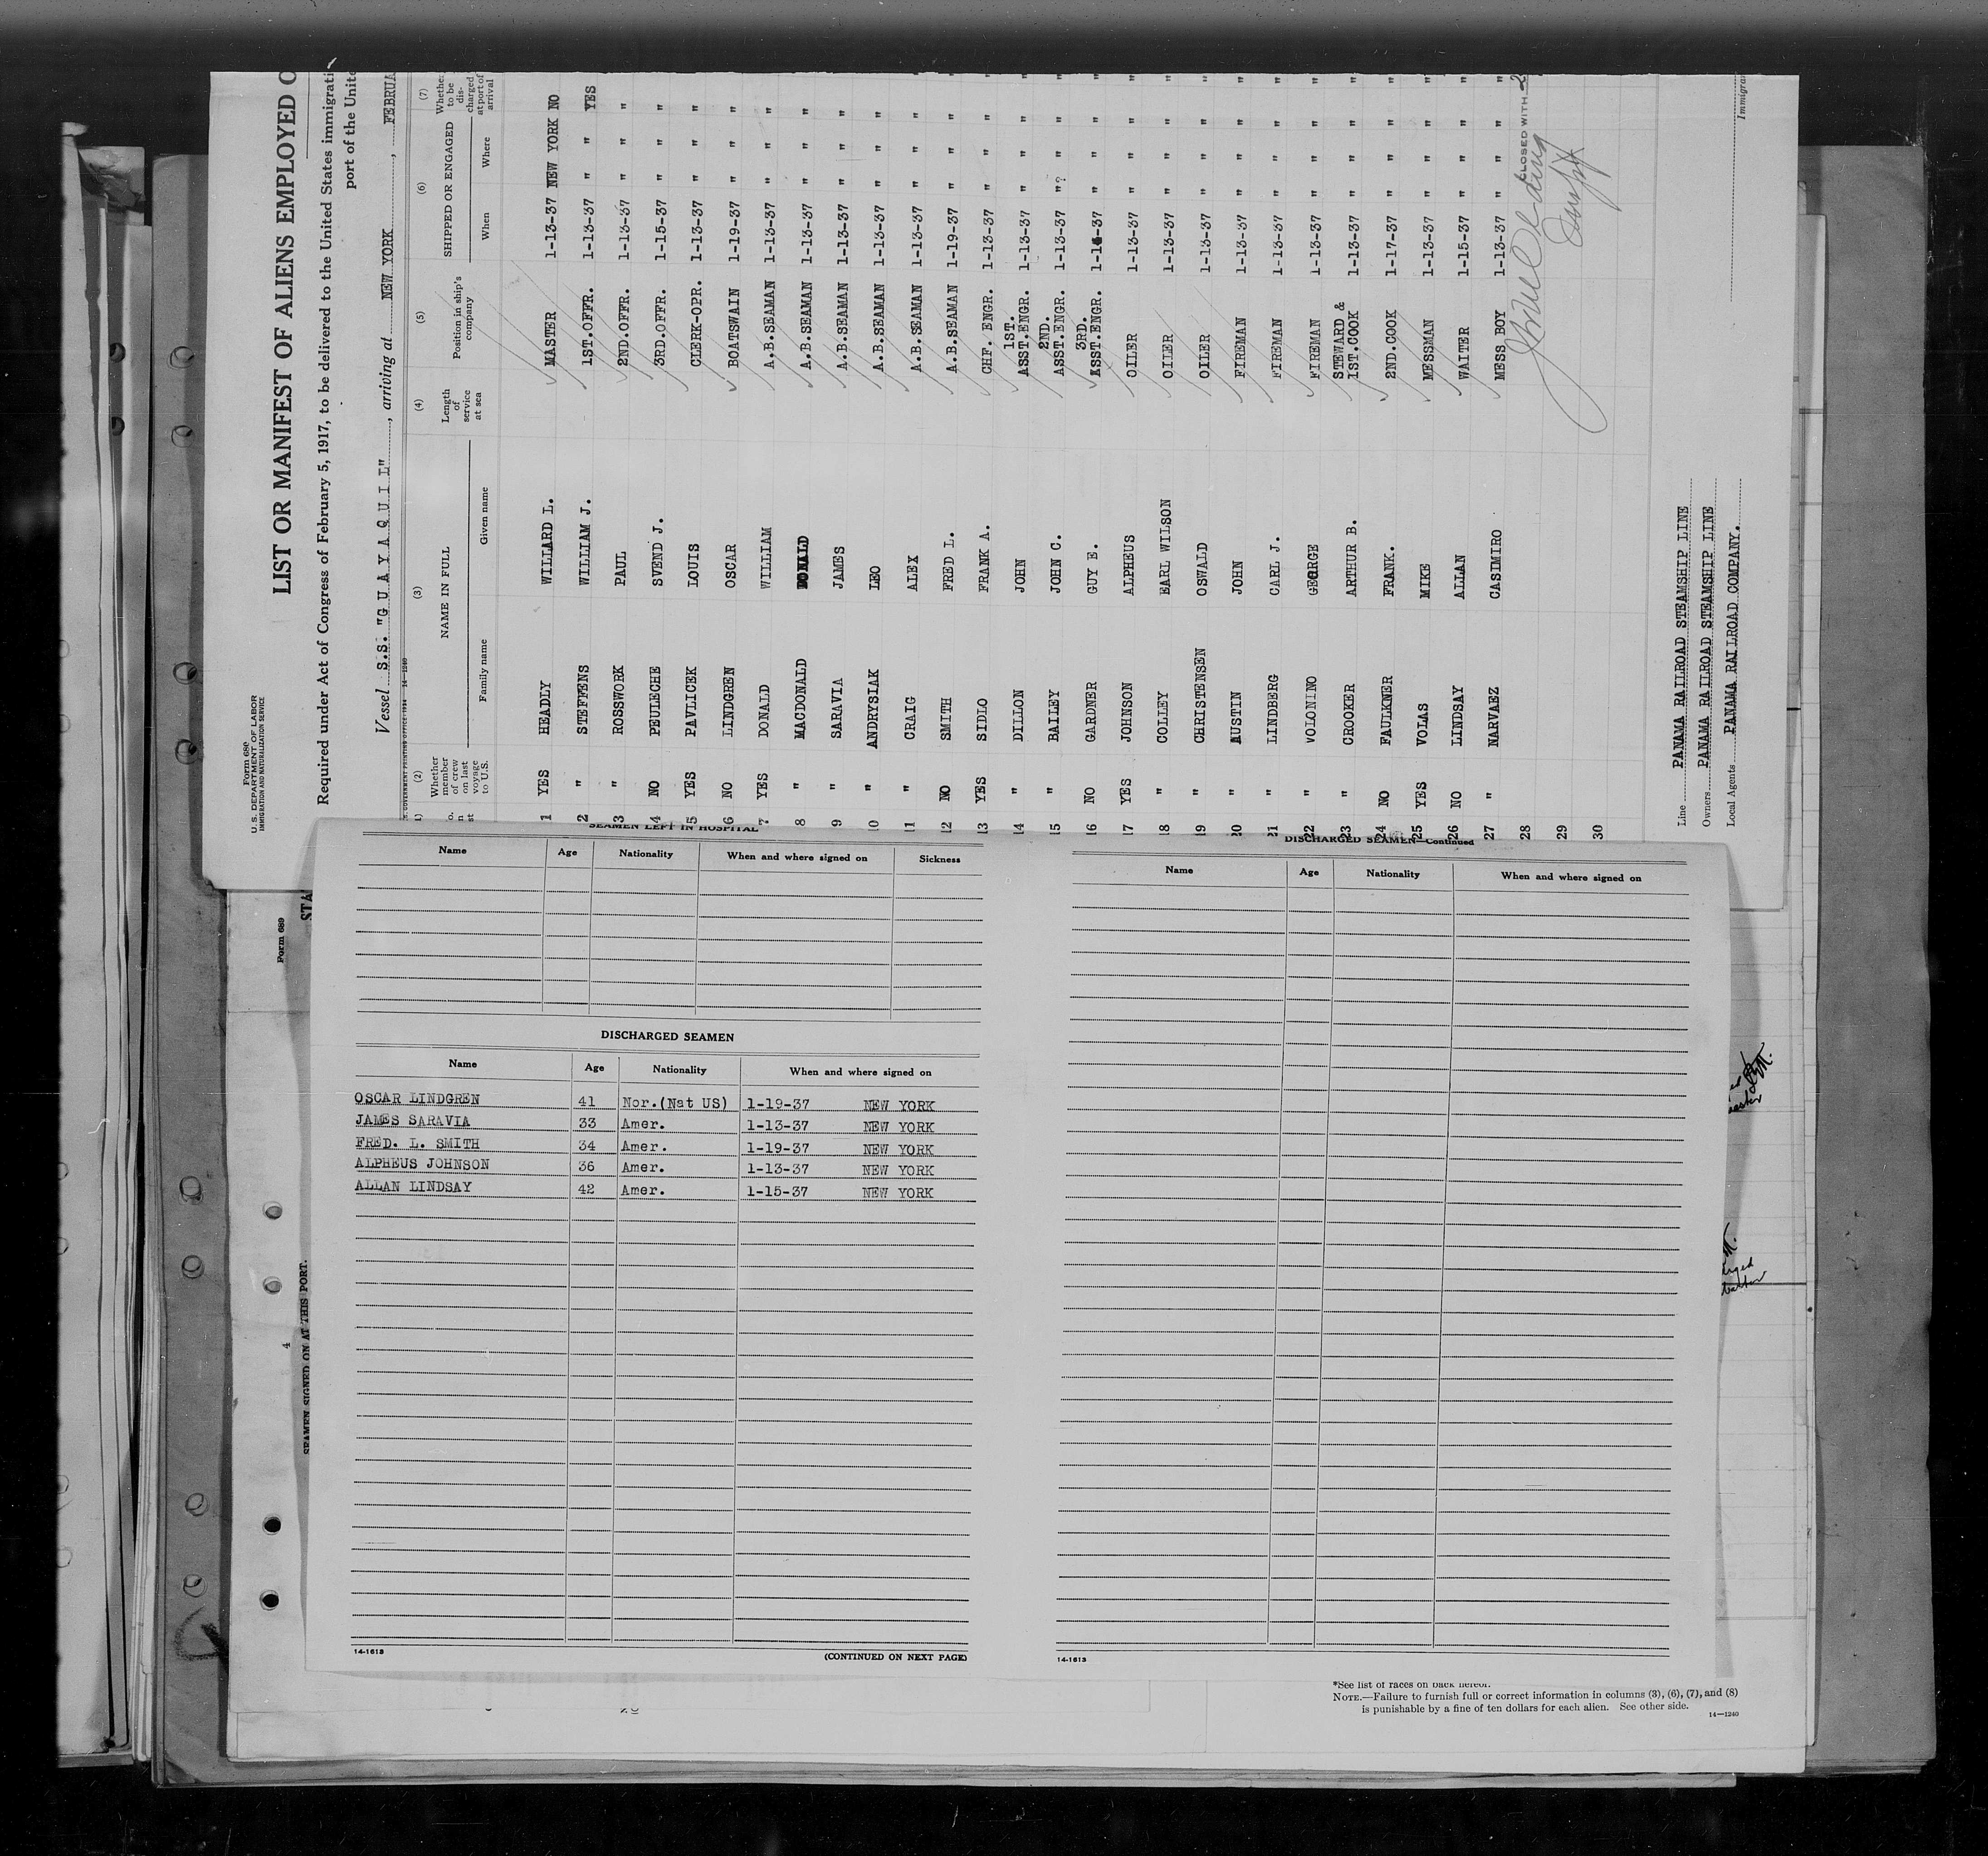 Form 680
U. S. DEPARTMENT OF LABOR
IMMIGRATION AND NATURALIZATION SERVICE
LIST OR MANIFEST OF ALIENS EMPLOYED O
Required under Act of Congress of February 5, 1917, to be delivered to the United States immigrati
port of the Unite
Vessel S.S. "G U A Y A Q U I L", arriving at NEW YORK, FEBRUA
GOVERNMENT PRINTING OFFICE: 1934 14—1240
(2) (3) (4) (5) (6) (7)
Whether member of crew on last voyage to U.S. NAME IN FULL Family name Given name Length of service at sea Position in ship's company SHIPPED OR ENGAGED When Where Whether to be discharged at port of arrival
1 YES HEADLY WILLARD L. MASTER 1-13-37 NEW YORK NO
2 " STEFFENS WILLIAM J. 1ST.OFFR. 1-13-37 " " YES
3 " ROSSWORK PAUL 2ND.OFFR. 1-13-37 " " "
4 NO PEULECHE SVEND J. 3RD.OFFR. 1-15-37 " " "
5 YES PAVLICEK LOUIS CLERK-OPR. 1-13-37 " " "
6 NO LINDGREN OSCAR BOATSWAIN 1-19-37 " " "
7 YES DONALD WILLIAM A.B.SEAMAN 1-13-37 " " "
8 " MACDONALD DONALD A.B.SEAMAN 1-13-37 " " "
9 " SARAVIA JAMES A.B.SEAMAN 1-13-37 " " "
10 " ANDRYSIAK LEO A.B.SEAMAN 1-13-37 " " "
11 " CRAIG ALEX A.B.SEAMAN 1-13-37 " " " "
12 NO SMITH FRED L. A.B.SEAMAN 1-19-37 " " " "
13 YES SIDLO FRANK A. CHF. ENGR. 1-13-37 " " " "
14 " DILLON JOHN 1ST. ASST.ENGR. 1-13-37 " " " "
15 " BAILEY JOHN C. 2ND. ASST.ENGR. 1-13-37 "? " " "
16 NO GARDNER GUY E. 3RD. ASST.ENGR. 1-14-37 " " " "
17 YES JOHNSON ALPHEUS OILER 1-13-37 " " " "
18 " COLLEY EARL WILSON OILER 1-13-37 " " " "
19 " CHRISTENSEN OSWALD OILER 1-13-37 " " " "
20 " AUSTIN JOHN FIREMAN 1-13-37 " " " "
21 " LINDBERG CARL J. FIREMAN 1-13-37 " " " "
22 " VOLONINO GEORGE FIREMAN 1-13-37 " " " "
23 " CROOKER ARTHUR B. STEWARD & 1ST.COOK 1-13-37 " " " "
24 NO FAULKNER FRANK. 2ND.COOK 1-17-37 " " " "
25 YES VOLAS MIKE MESSMAN 1-13-37 " " " "
26 NO LINDSAY ALLAN WAITER 1-15-37 " " " "
27 " NARVAEZ CASIMIRO MESS BOY 1-13-37 " " " "
28 CLOSED WITH 2
29
30
Line PANAMA RAILROAD STEAMSHIP LINE
Owners PANAMA RAILROAD STEAMSHIP LINE
Local Agents PANAMA RAILROAD COMPANY.
Immigran
SEAMEN LEFT IN HOSPITAL
Name Age Nationality When and where signed on Sickness
DISCHARGED SEAMEN
Name Age Nationality When and where signed on
OSCAR LINDGREN 41 Nor.(Nat US) 1-19-37 NEW YORK
JAMES SARAVIA 33 Amer. 1-13-37 NEW YORK
FRED. L. SMITH 34 Amer. 1-19-37 NEW YORK
ALPHEUS JOHNSON 36 Amer. 1-13-37 NEW YORK
ALLAN LINDSAY 42 Amer. 1-15-37 NEW YORK
14-1613
(CONTINUED ON NEXT PAGE)
DISCHARGED SEAMEN—Continued
Name Age Nationality When and where signed on
14-1613
Form 689
STA
4
SEAMEN SIGNED ON AT THIS PORT.
*See list of races on back hereof.
NOTE.—Failure to furnish full or correct information in columns (3), (6), (7), and (8)
is punishable by a fine of ten dollars for each alien. See other side.
14—1240